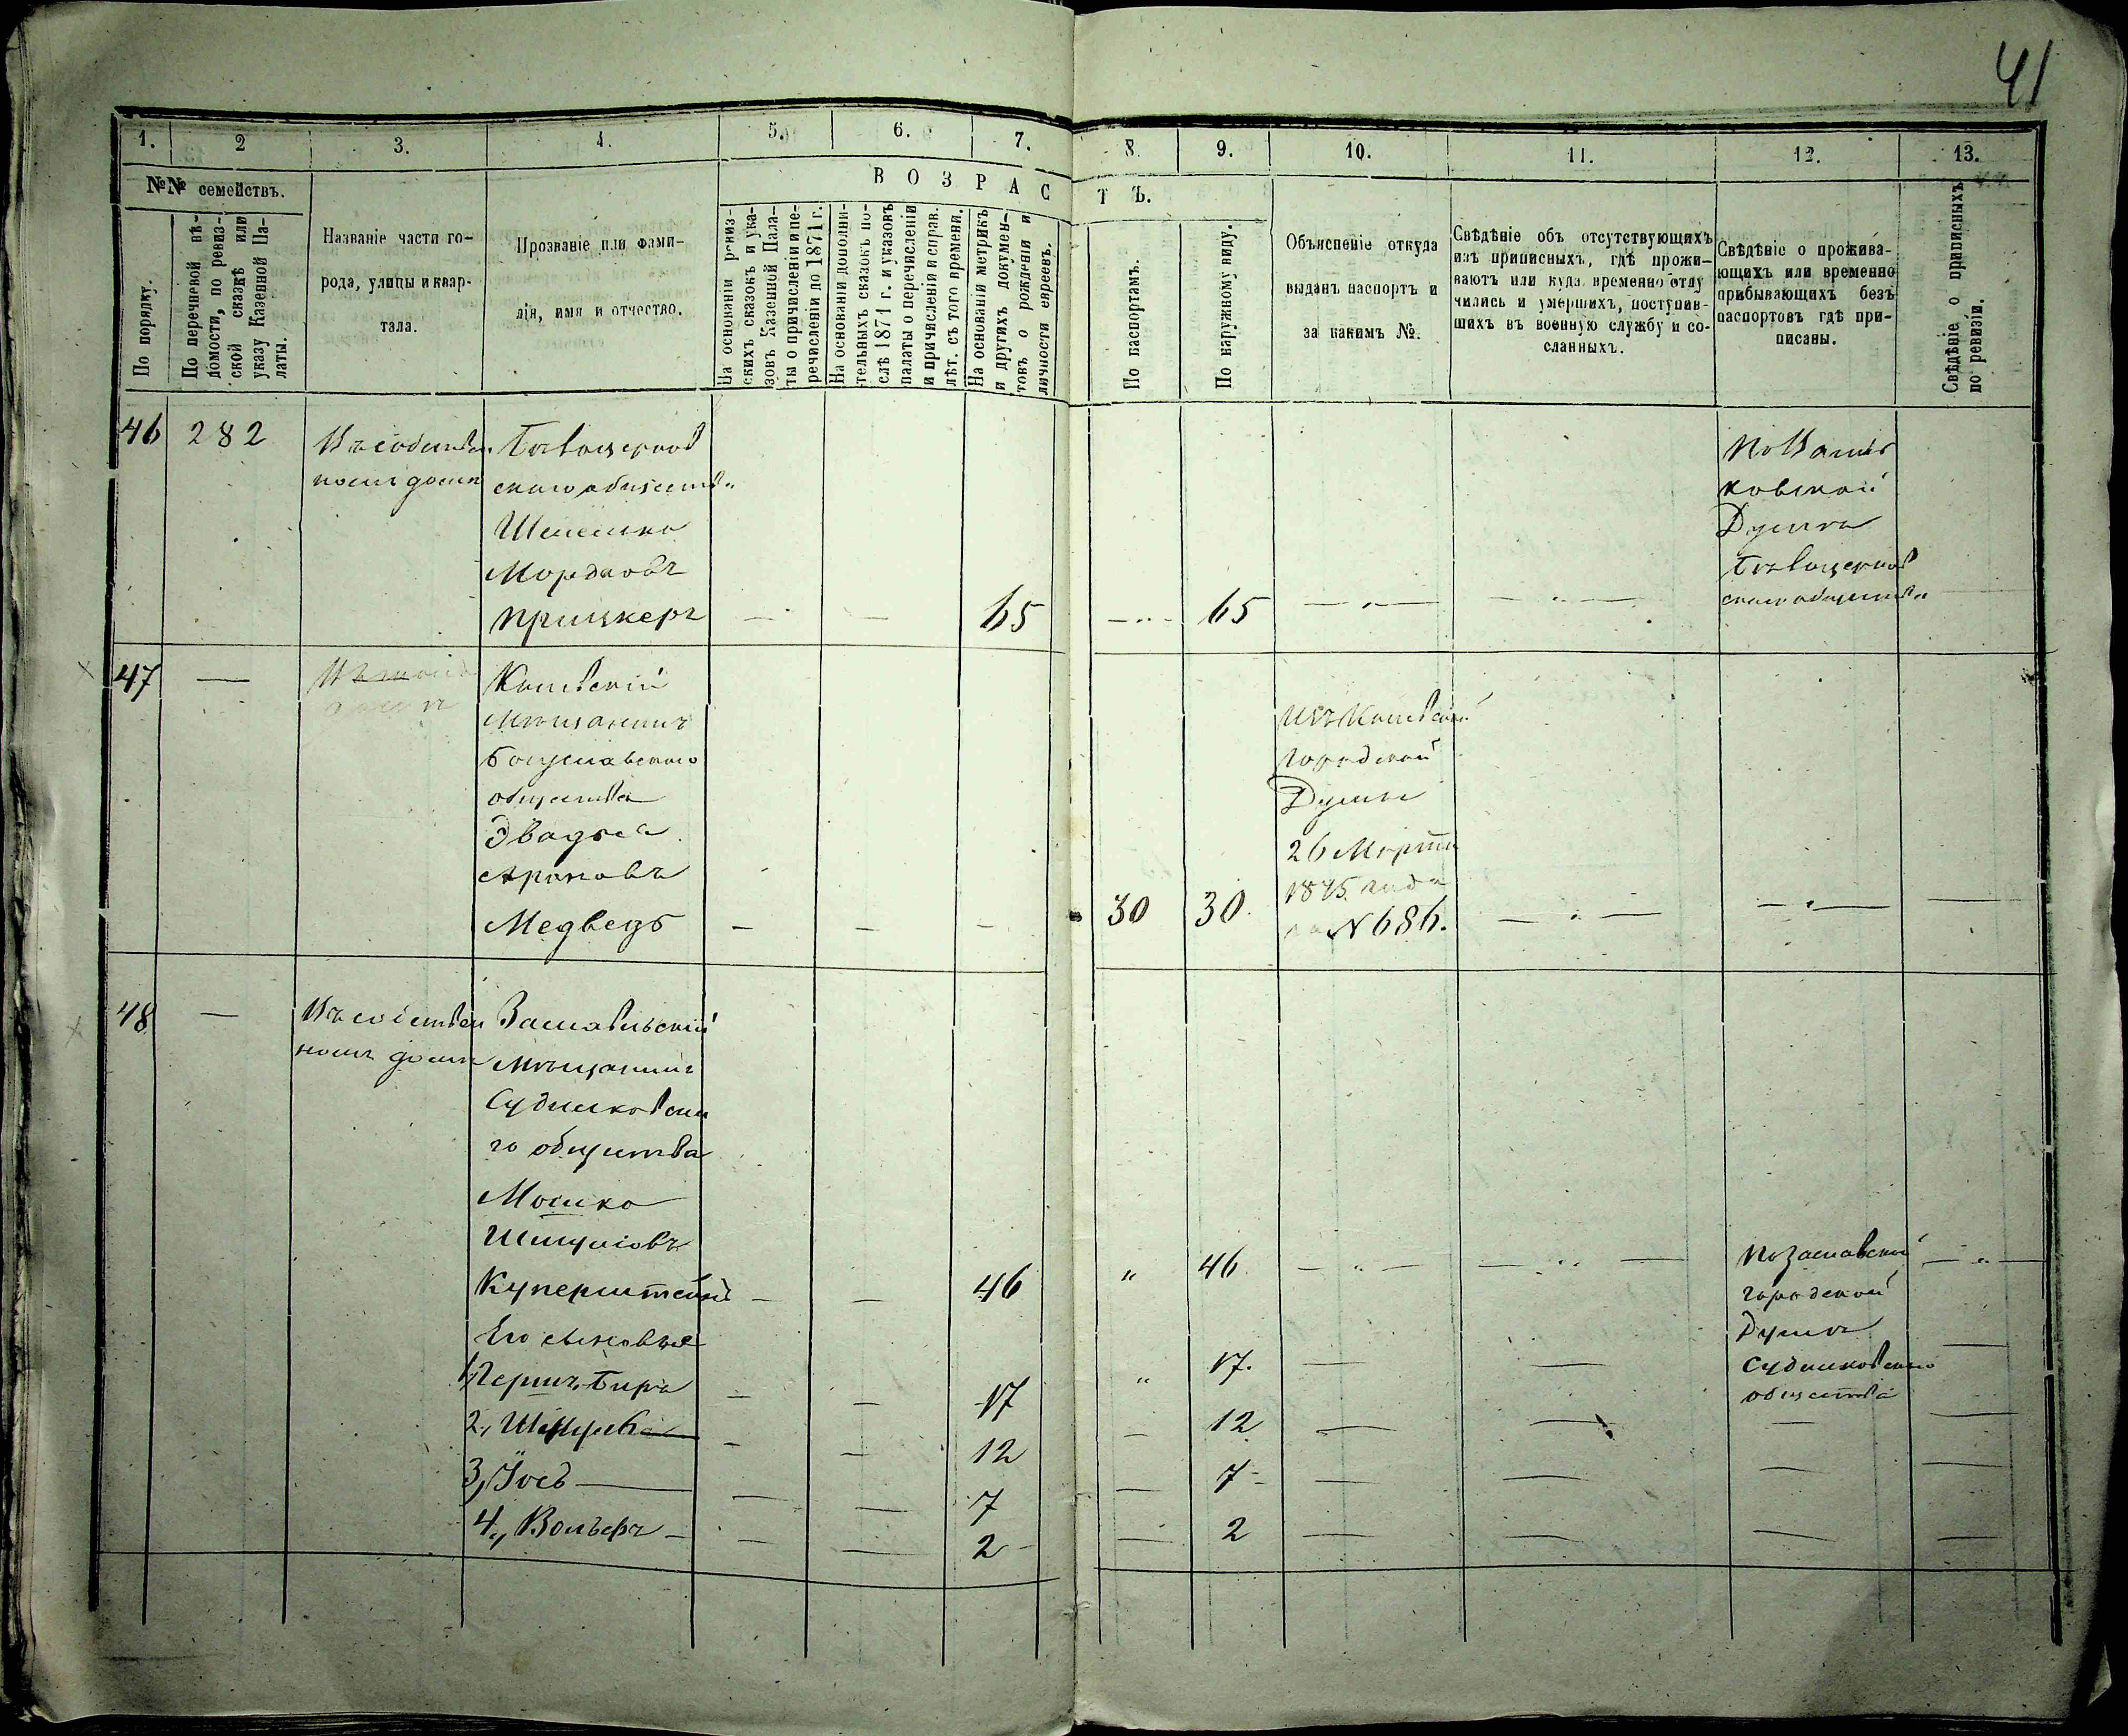 41
1.
2
3.
4.
5.
6.
7.
8.
9.
10.
11.
12.
13.
№№ семействъ.
По порядку.
По перечневой вѣ-
домости, по ревиз-
ской сказкѣ или
указу Казенной Па-
латы.
Названіе части го-
рода, улицы и квар-
тала.
Прозваніе или фами-
лія, имя и отчество.
ВОЗРАС
ТЪ.
На основаніи ревиз-
скихъ сказокъ и ука-
зовъ Казенной Пала-
ты о причисленіи и пе-
речисленіи до 1871 г.
На основаніи дополни-
тельныхъ сказокъ по-
слѣ 1871 г. и указовъ
палаты о перечисленіи
и причисленіи и справ.
лѣт. съ того времени.
На основаніи метрикъ
и другихъ докумен-
товъ о рожденіи и
личности евреевъ.
По паспортамъ.
По наружному виду.
Объясненіе откуда
выданъ паспортъ и
за какимъ №.
Свѣдѣніе объ отсутствующихъ
изъ приписныхъ, гдѣ прожи-
ваютъ или куда временно отлу
чились и умершихъ, поступив-
шихъ въ военную службу и со-
сланныхъ.
Свѣдѣніе о прожива-
ющихъ или временно
прибывающихъ безъ
паспортовъ гдѣ при-
писаны.
Свѣдѣніе о приписныхъ
по ревизіи.
46
282
Въ собствен
номъ домѣ
Бѣлоцерков
скаго общества
Шлемка
Мордковъ
Прицкеръ
65
65
По Василь
ковской
Думѣ
Бѣлоцерков
скаго общества
47
Кіевскій
мѣщанинъ
Богуславского
общества
Эвадья
Ароновъ
Медведь
30
30.
Изъ Кіевской
городской
Думы
26 Марта
1875 года
№ 686.
48
Въ собствен
номъ домѣ
Заславльскій
мѣщанинъ
Судилковска
го общества
Мошко
Куперштейнъ
46
46
По Заславской
городской
Думѣ
Судилковскаго
общества
Его сыновья
1, Гершъ-Бира
17
17.
2,
12
12
3, Іосъ
7
7
4, Вольфъ
2
2